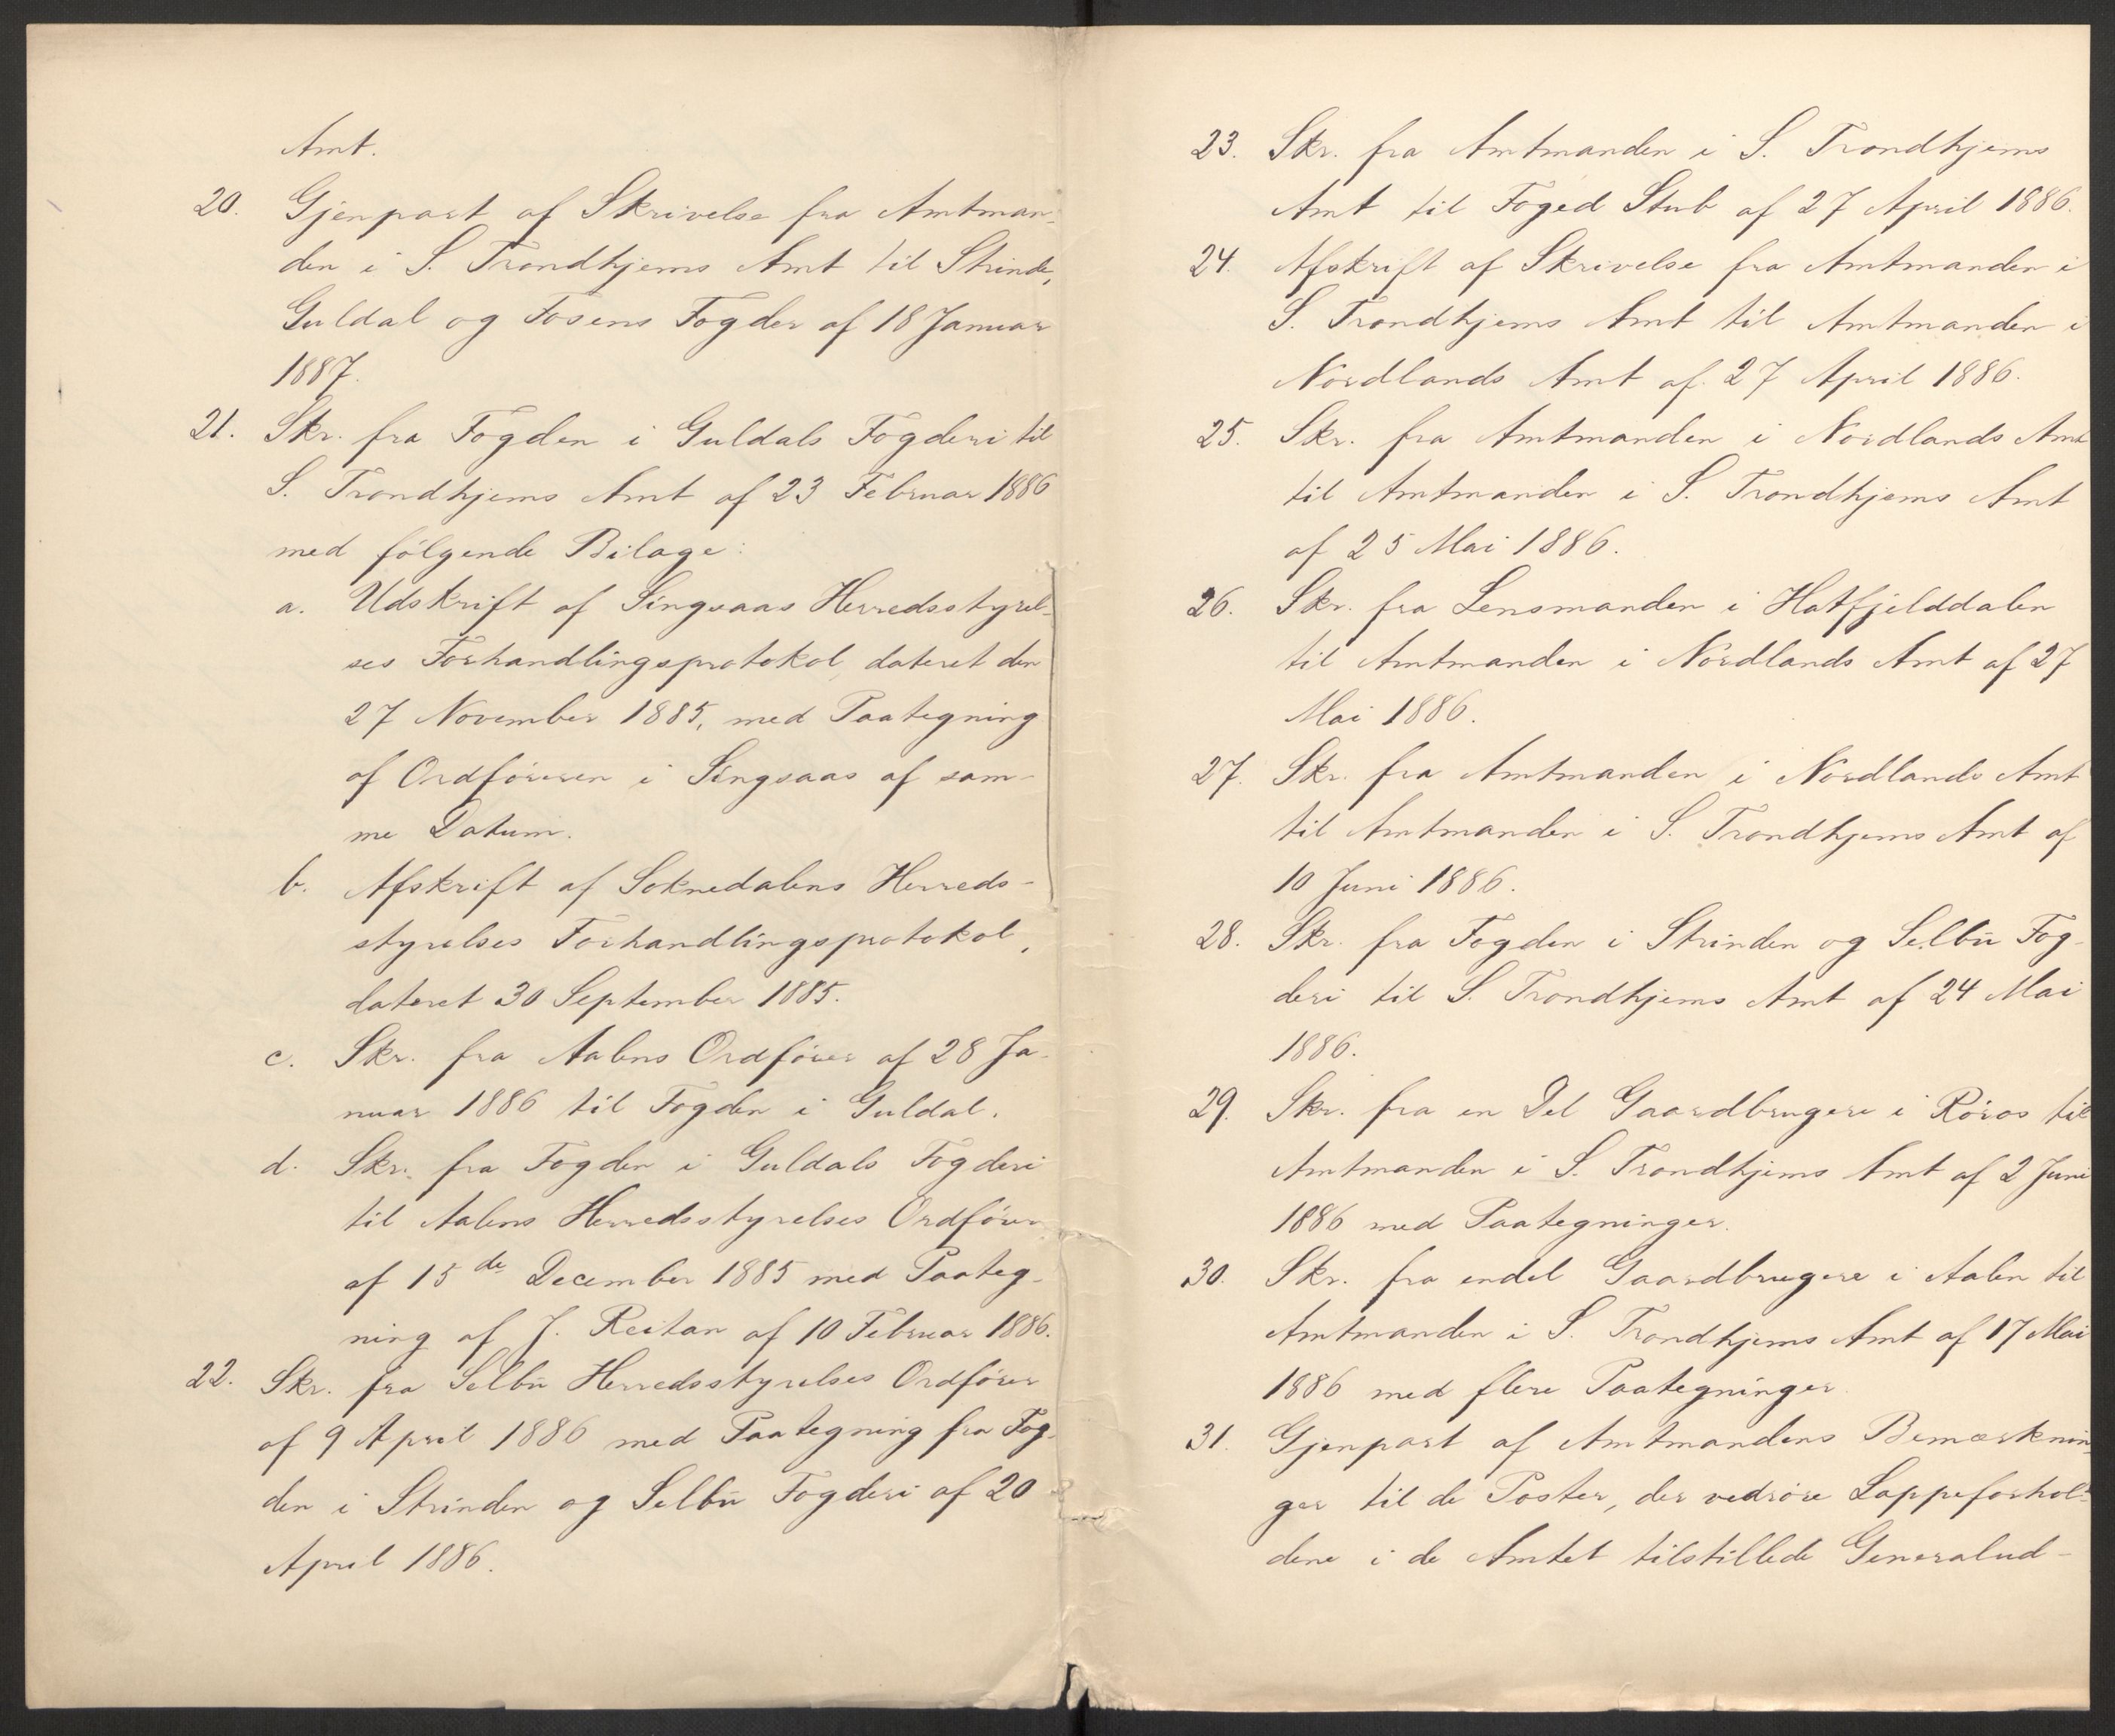 Amt.
20. Gjenpart af Skrivelse fra Amtman-
den i S. Trondhjems Amt til Strinde,
Guldal og Fosens Fogder af 18 Januar
1887.
21. Skr. fra Fogden i Guldals Fogderi til
S. Trondhjems Amt af 23 Februar 1886
med følgende Bilage:
a. Udskrift af Singsaas Herredsstyrel-
ses Forhandlingsprotokol, dateret den
27 November 1885, med Paategning
af Ordføreren i Singsaas af sam-
me Datum.
b. Afskrift af Soknedalens Herreds-
styrelses Forhandlingsprotokol,
dateret 30 September 1885.
c. Skr. fra Aalens Ordfører af 28 Ja-
nuar 1886 til Fogden i Guldal.
d. Skr. fra Fogden i Guldals Fogderi
til Aalens Herredsstyrelses Ordfører
af 15de December 1885 med Paateg-
ning af J. Reitan af 10 Februar 1886.
22. Skr. fra Selbu Herredsstyrelses Ordfører
af 9 April 1886 med Paategning fra Fog-
den i Strinden og Selbu Fogderi af 20
April 1886.
23. Skr. fra Amtmanden i S. Trondhjems
Amt til Foged Stub af 27 April 1886.
24. Afskrift af Skrivelse fra Amtmanden i
S. Trondhjems Amt til Amtmanden i
Nordlands Amt af 27 April 1886.
25. Skr. fra Amtmanden i Nordlands Amt
til Amtmanden i S. Trondhjems Amt
af 25 Mai 1886.
26. Skr. fra Lensmanden i Hatfjelddalen
til Amtmanden i Nordlands Amt af 27
Mai 1886.
27. Skr. fra Amtmanden i Nordlands Amt
til Amtmanden i S. Trondhjems Amt af
10 Juni 1886.
28. Skr. fra Fogden i Strinden og Selbu Fog-
deri til S. Trondhjems Amt af 24 Mai
1886.
29. Skr. fra en Del Gaardbrugere i Røros til
Amtmanden i S. Trondhjems Amt af 2 Juni
1886 med Paategninger.
30. Skr. fra endel Gaardbrugere i Aalen til
Amtmanden i S. Trondhjems Amt af 17 Mai
1886 med flere Paategninger.
31. Gjenpart af Amtmandens Bemærknin-
ger til de Poster, der vedrøre Lappeforhol-
dene i de Amtet tilstillede Generalud-